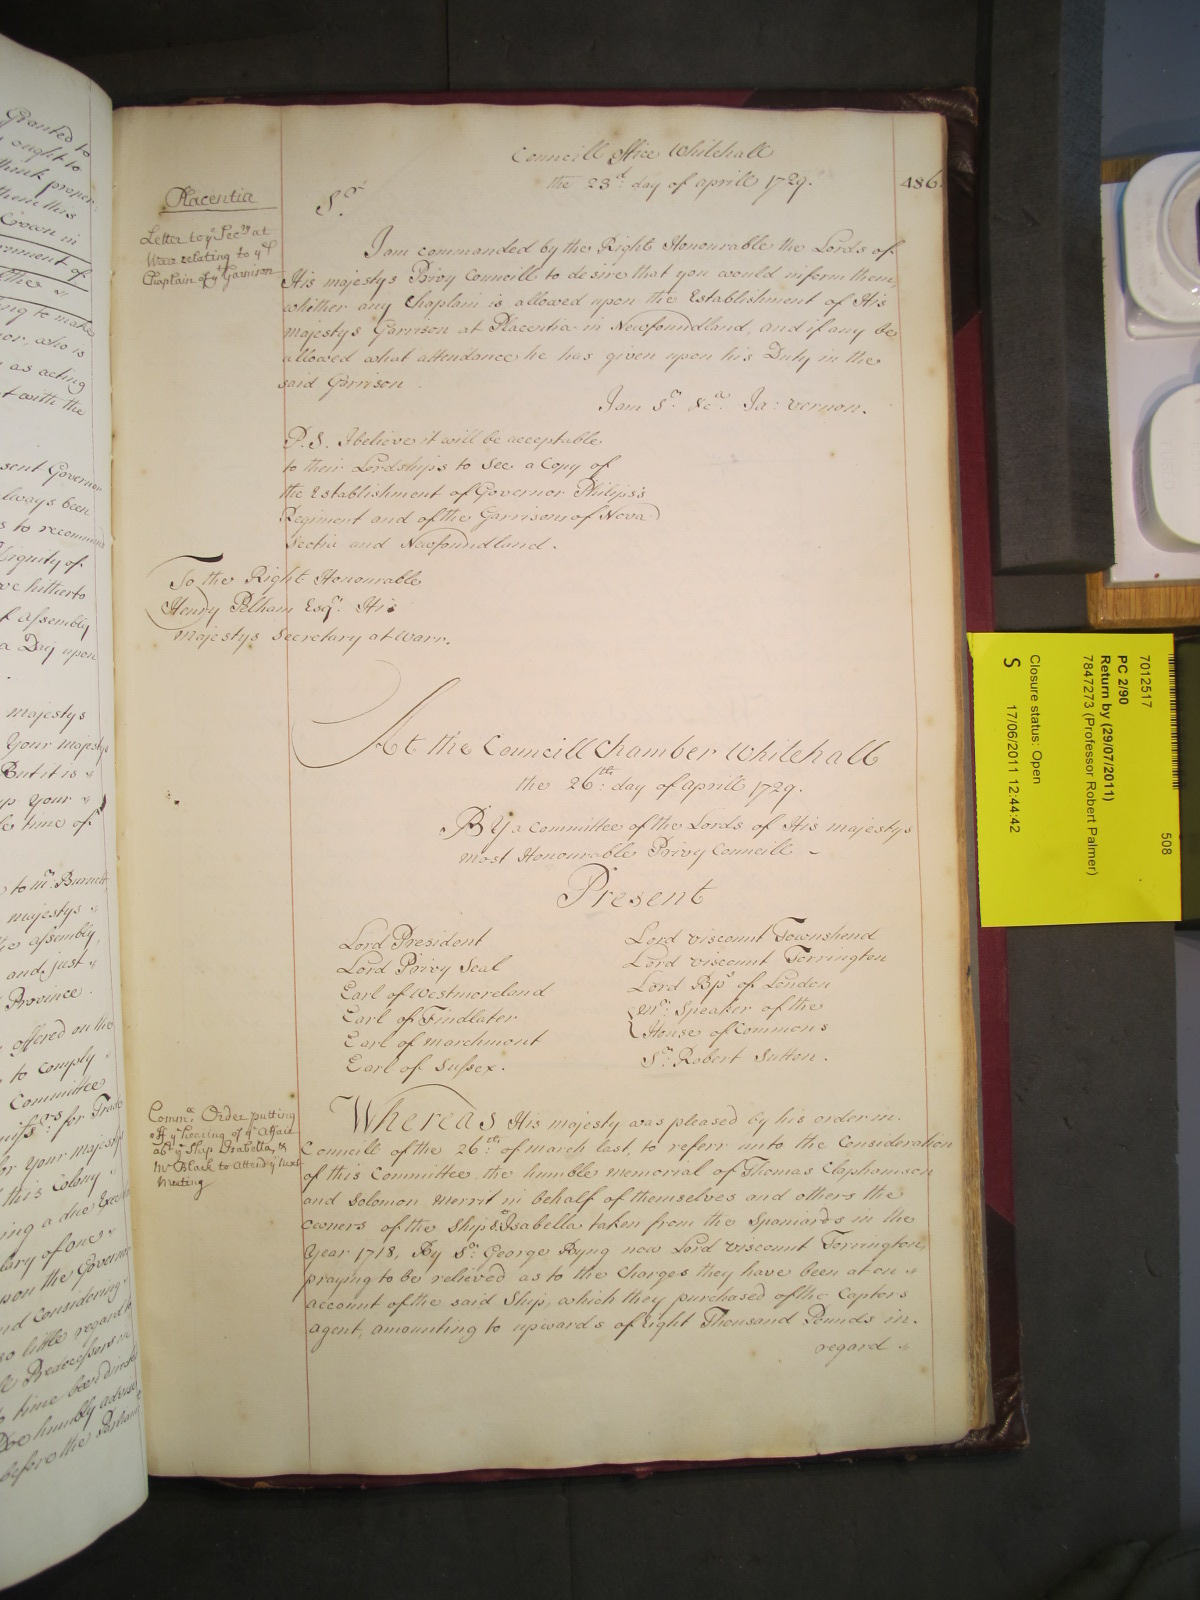 Granted to
ought to
think proper
them this
Crown in
ernment of
the
ing to make
nor, who is
as acting
t with the
sent Governor
lways been
s to recommend
Dignity of
ve hitherto
f Assembly
a Day upon
Majestys
Your Majesty
But it is
up Your
le time of
to Mr. Burnett
Majestys
he Assembly
and just
Province.
offered on the
to comply
Committee
miss.rs for Trade
or Your Majesty
this Colony
ing a due
lary of one
upon the Governor
nd considering
so little regard to
time been
Doe humbly advise
before the Parliament
Councill Office Whitehall
the 23d. day of Aprill 1729.
486.
Placentia
Letter to ye Secry at
Warr relating to ye
Chaplain of yt Garrison
Sr.
I am commanded by the Right Honourable the Lords of
His Majestys Privy Councill to desire that you would inform them,
whether any Chaplain is allowed upon the Establishment of His
Majestys Garrison at Placentia in Newfoundland, and if any be
allowed what attendance he has given upon his Duty in the
said Garrison.
I am Sr. &ca. Ja: Vernon.
P.S. I believe it will be acceptable
to their Lordships to See a Copy of
the Establishment of Governor Philips's
Regiment and of the Garrisons of Nova
Scotia and Newfoundland.
To the Right Honourable
Henry Pelham Esqr. His
Majestys Secretary at Warr.
At the Councill Chamber Whitehall
the 26th: day of Aprill 1729.
By a Committee of the Lords of His Majestys
most Honourable Privy Councill
Present
Lord President
Lord Privy Seal
Earl of Westmoreland
Earl of Findlater
Earl of Marchmont
Earl of Sussex.
Lord Viscount Townshend
Lord Viscount Torrington
Lord Bp. of London
Mr. Speaker of the
House of Commons
Sr. Robert Sutton.
Comm.ee Order putting
off ye hearing of ye Affair
abt. ye Ship Isabella, &
Mr Black to Attend ye Next
Meeting
Whereas His Majesty was pleased by his order in
Councill of the 26th. of March last, to referr unto the Consideration
of this Committee, the humble Memorial of Thomas Claphamson
and Solomon Merrit in behalf of themselves and others the
Owners of the Ship St. Isabella taken from the Spaniards in the
Year 1718, By Sr. George Byng now Lord Viscount Torrington,
praying to be relieved as to the Charges they have been at on
account of the said Ship, which they purchased of the Captors
agent, amounting to upwards of Eight Thousand Pounds in.
regard
7012517
508
PC 2/90
Return by (29/07/2011)
7847273 (Professor Robert Palmer)
Closure status: Open
S
17/06/2011 12:44:42